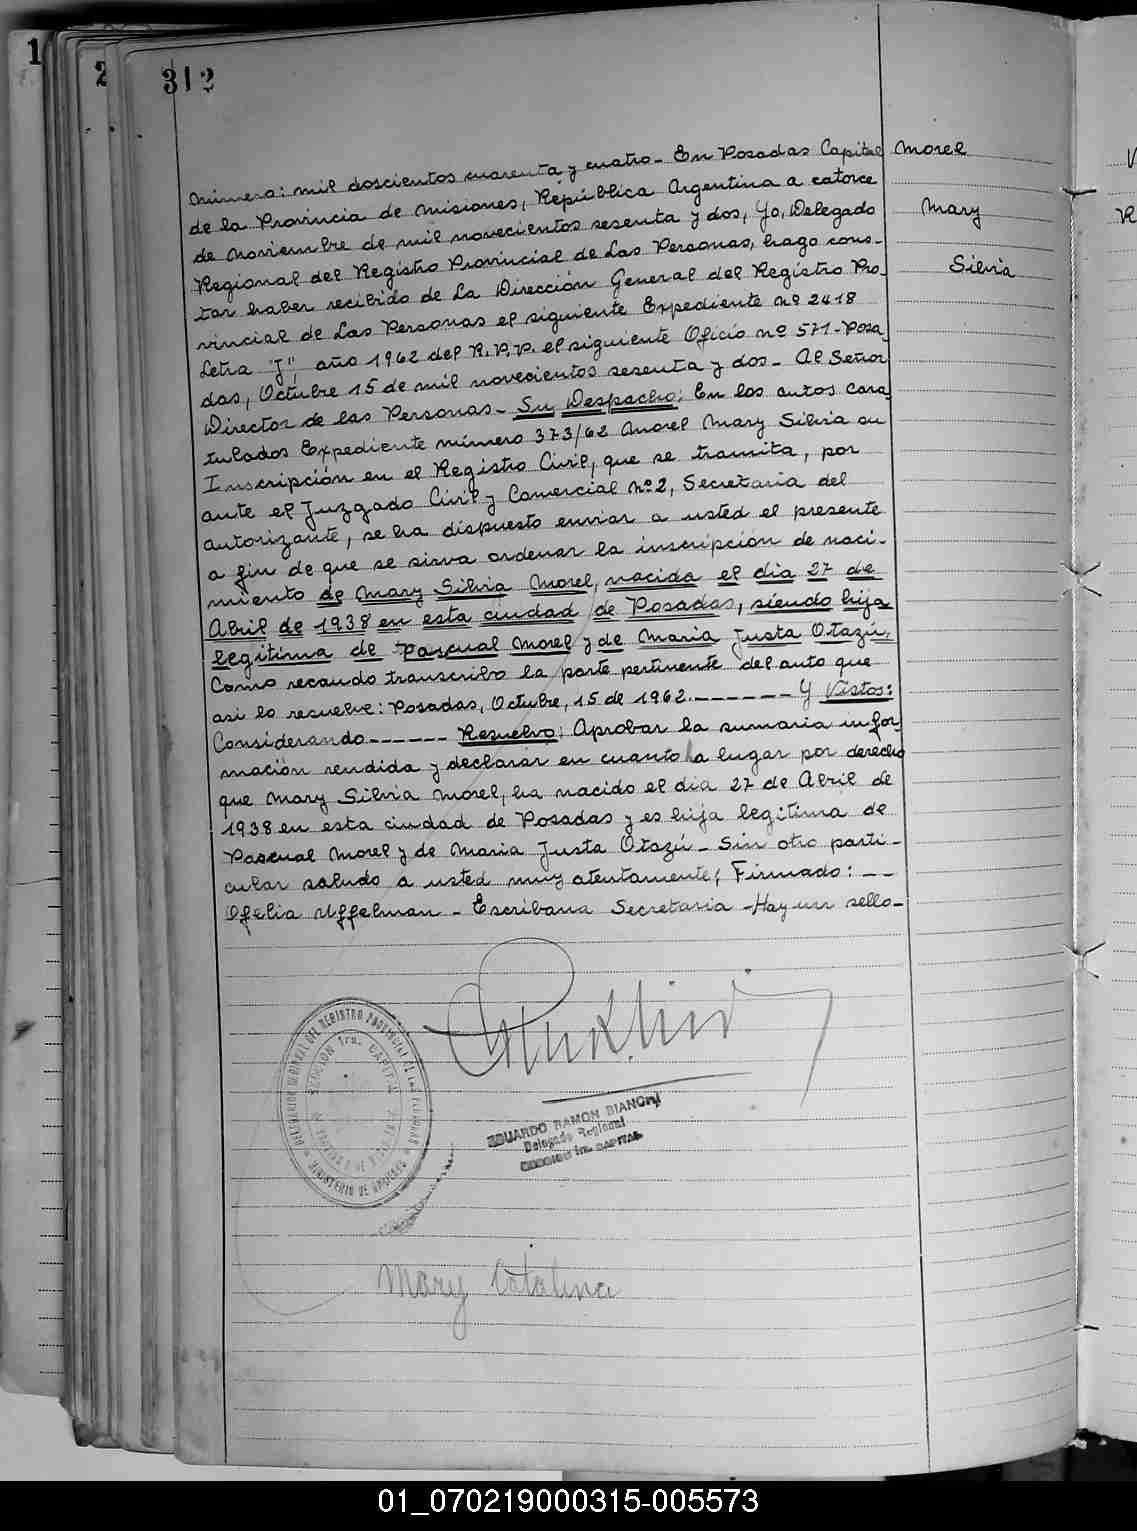 1
2
312
Número: mil doscientos cuarenta y cuatro- En Posadas Capital
de la Provincia de Misiones, República Argentina a catorce
de Noviembre de mil novecientos sesenta y dos, Yo, Delegado
Regional del Registro Provincial de Las Personas, hago cons-
tar haber recibido de La Dirección General del Registro Pro-
vincial de Las Personas el siguiente Expediente nº 2418
Letra "J", año 1962 del R.P.P. el siguiente Oficio nº 571-Posa-
das, Octubre 15 de mil novecientos sesenta y dos- Al Señor
Director de las Personas- Su Despacho: En los autos cara-
tulados Expediente número 373/62 Morel Mary Silvia su
Inscripción en el Registro Civil, que se tramita, por
ante el Juzgado Civil y Comercial Nº 2, Secretaria del
autorizante, se ha dispuesto enviar a usted el presente
a fin de que se sirva ordenar la inscripción de naci-
miento de Mary Silvia Morel, nacida el dia 27 de
Abril de 1938 en esta ciudad de Posadas, siendo hija
legitima de Pascual Morel y de Maria Justa Otazú,
Como recaudo transcribo la parte pertinente del auto que
asi lo resuelve: Posadas, Octubre, 15 de 1962.------- Y Vistos:
Considerando------ Resuelvo: Aprobar la sumaria infor-
mación rendida y declarar en cuanto ha lugar por derecho
que Mary Silvia Morel, ha nacido el dia 27 de Abril de
1938 en esta ciudad de Posadas y es hija legitima de
Pascual Morel y de Maria Justa Otazú- Sin otro parti-
cular saludo a usted muy atentamente; Firmado: --
Ofelia Uffelman - Escribana Secretaria -Hay un sello-
Morel
Mary
Silvia
DELEGACION REGIONAL DEL REGISTRO PROVINCIAL DE LAS PERSONAS
SECCION 1ra. CAPITAL
MINISTERIO DE GOBIERNO
EDUARDO RAMON BIANCHI
Delegado Regional
SECCION 1ra. CAPITAL
Mary Catalina
01_070219000315-005573